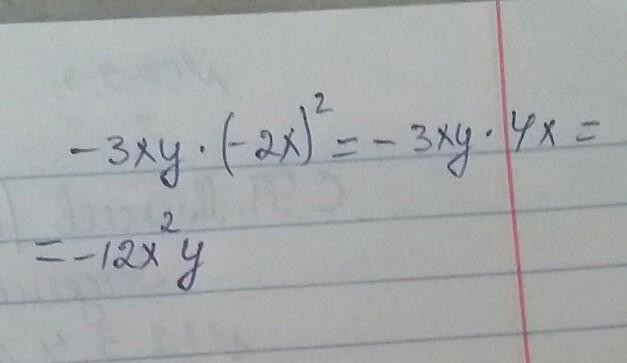 -3xy·(-2x)²=-3xy·4x=
=-12x²y